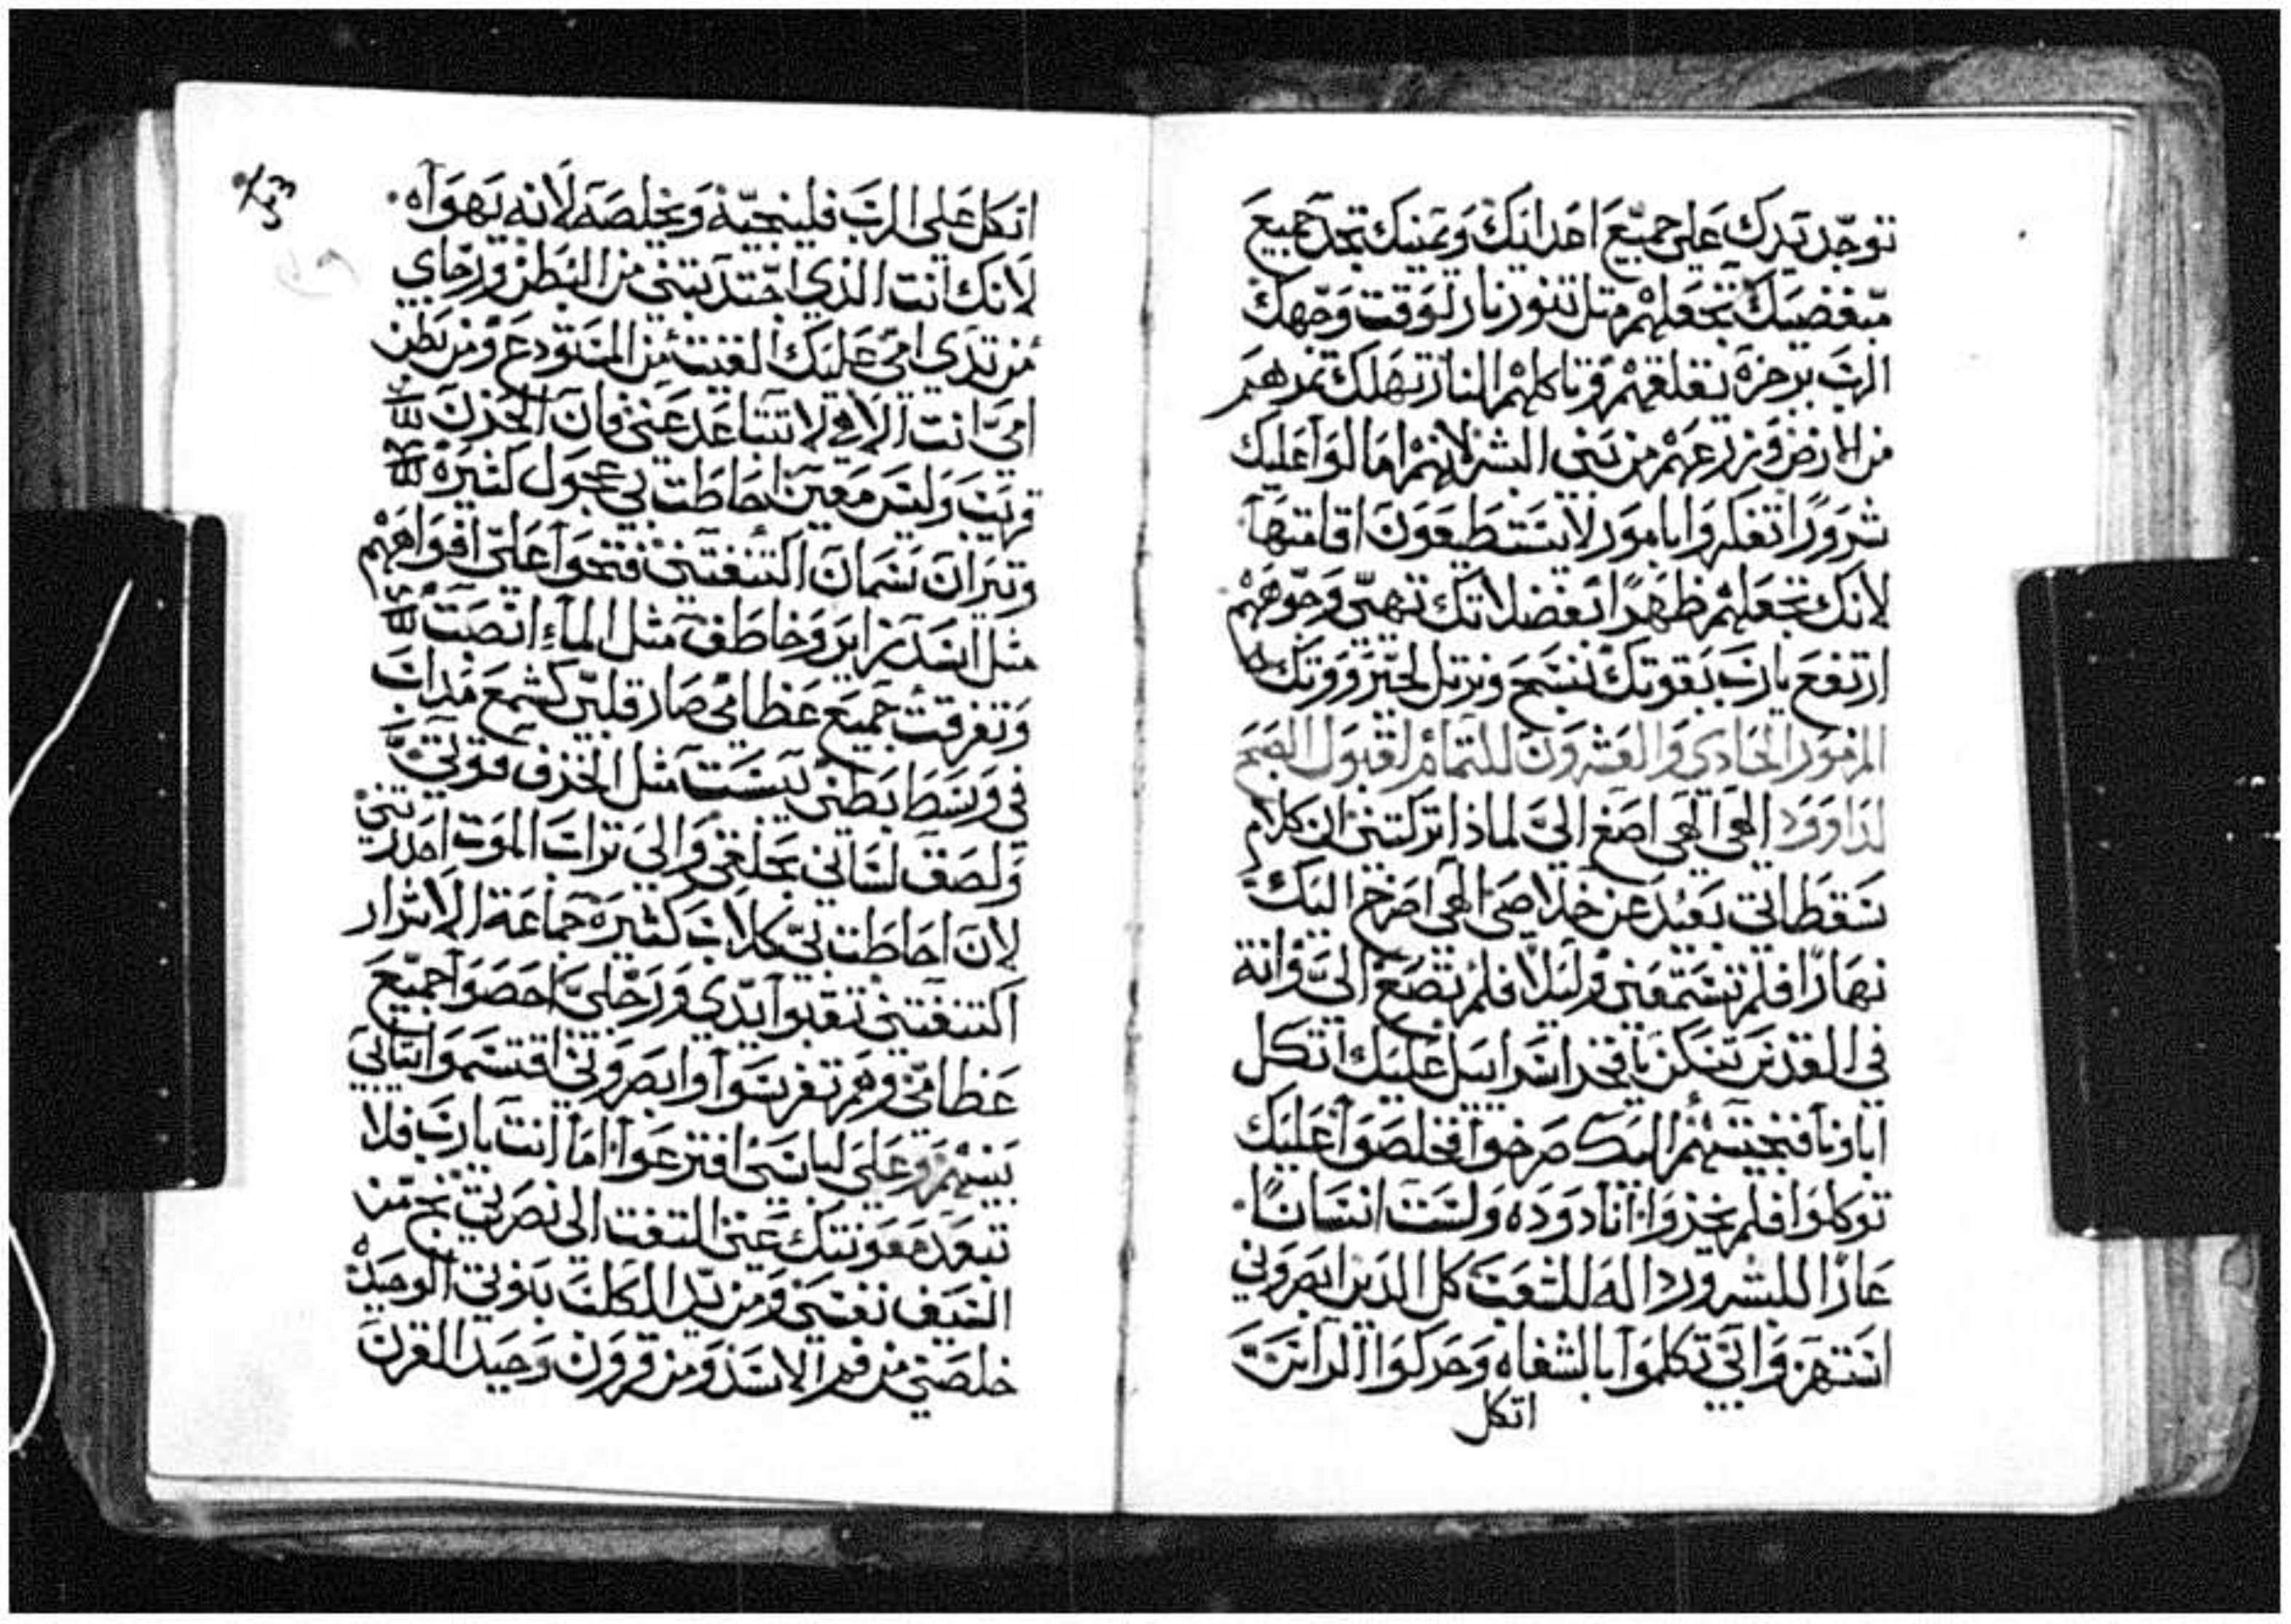 توجد يدك على جميع اعدائك ويمينك تجد جميع
مبغضيك تجعلهم متل تنور نار لوقت وجهك
الرب برجزه يقلقهم وتاكلهم النار تهلك تمرهم
من الارض وزرعهم من بني البشر لانهم امالوا عليك
شرورًا تفكروا بامور لا يستطيعون اقامتها
لانك تجعلهم ظهرًا بفضلاتك تهيي وجوههم
ارتفع يا رب بقوتك نسبح ونرتل لجبروتك
المزمور الحادي والعشرون للتمام لقبول الصبح
لداوود الهي الهي اصغ الي لماذا تركتني ان كلام
سقطاتي بعيد عن خلاصي الهي اصرخ اليك
نهارًا فلم تسمعني وليلًا فلم تصغ الي وانة
في القدس تسكن يا فخر اسراييل عليك اتكل
اباونا فنجيتهم اليك صرخوا فخلصوا عليك
توكلوا فلم يخزوا انا دوده ولست انسانًا
عارًا للبشر ورداله للشعب كل الدين ابصروني
استهزوا بي تكلموا بالشفاه وحركوا الراس
اتكل
اتكل على الرب فلينجيه ويخلصه لانه يهواه
لانك انت الذي اجتدبتني من البطن ورجاي
من تدي امي عليك القيت من المستودع ومن بطن
امي انت الاهي لا تتباعد عني فان الحزن
قريب وليس معين احاطت بي عجول كثيره
وتيران سمان اكتنفتني فتحوا علي افواههم
مثل اسد زاير وخاطف مثل الماء انصبت
وتفرقت جميع عظامي صار قلبي كشمع مداب
في وسط بطني يبست مثل الخزف قوتي
ولصق لساني بحلقي والى تراب الموت احدرتني
لان احاطت بي كلاب كثيره جماعة الاشرار
اكتنفتني تقبوا يدي ورجلي احصوا جميع
عظامي وهم تفرسوا وابصروني اقتسموا ثيابي
بينهم وعلى لباسي اقترعوا اما انت يا رب فلا
تبعد معونتك عني التفت الى نصرتي نج من
السيف نفسي ومن يد الكلب بنوتي الوحيده
خلصني من فم الاسد ومن قرون وحيد القرن